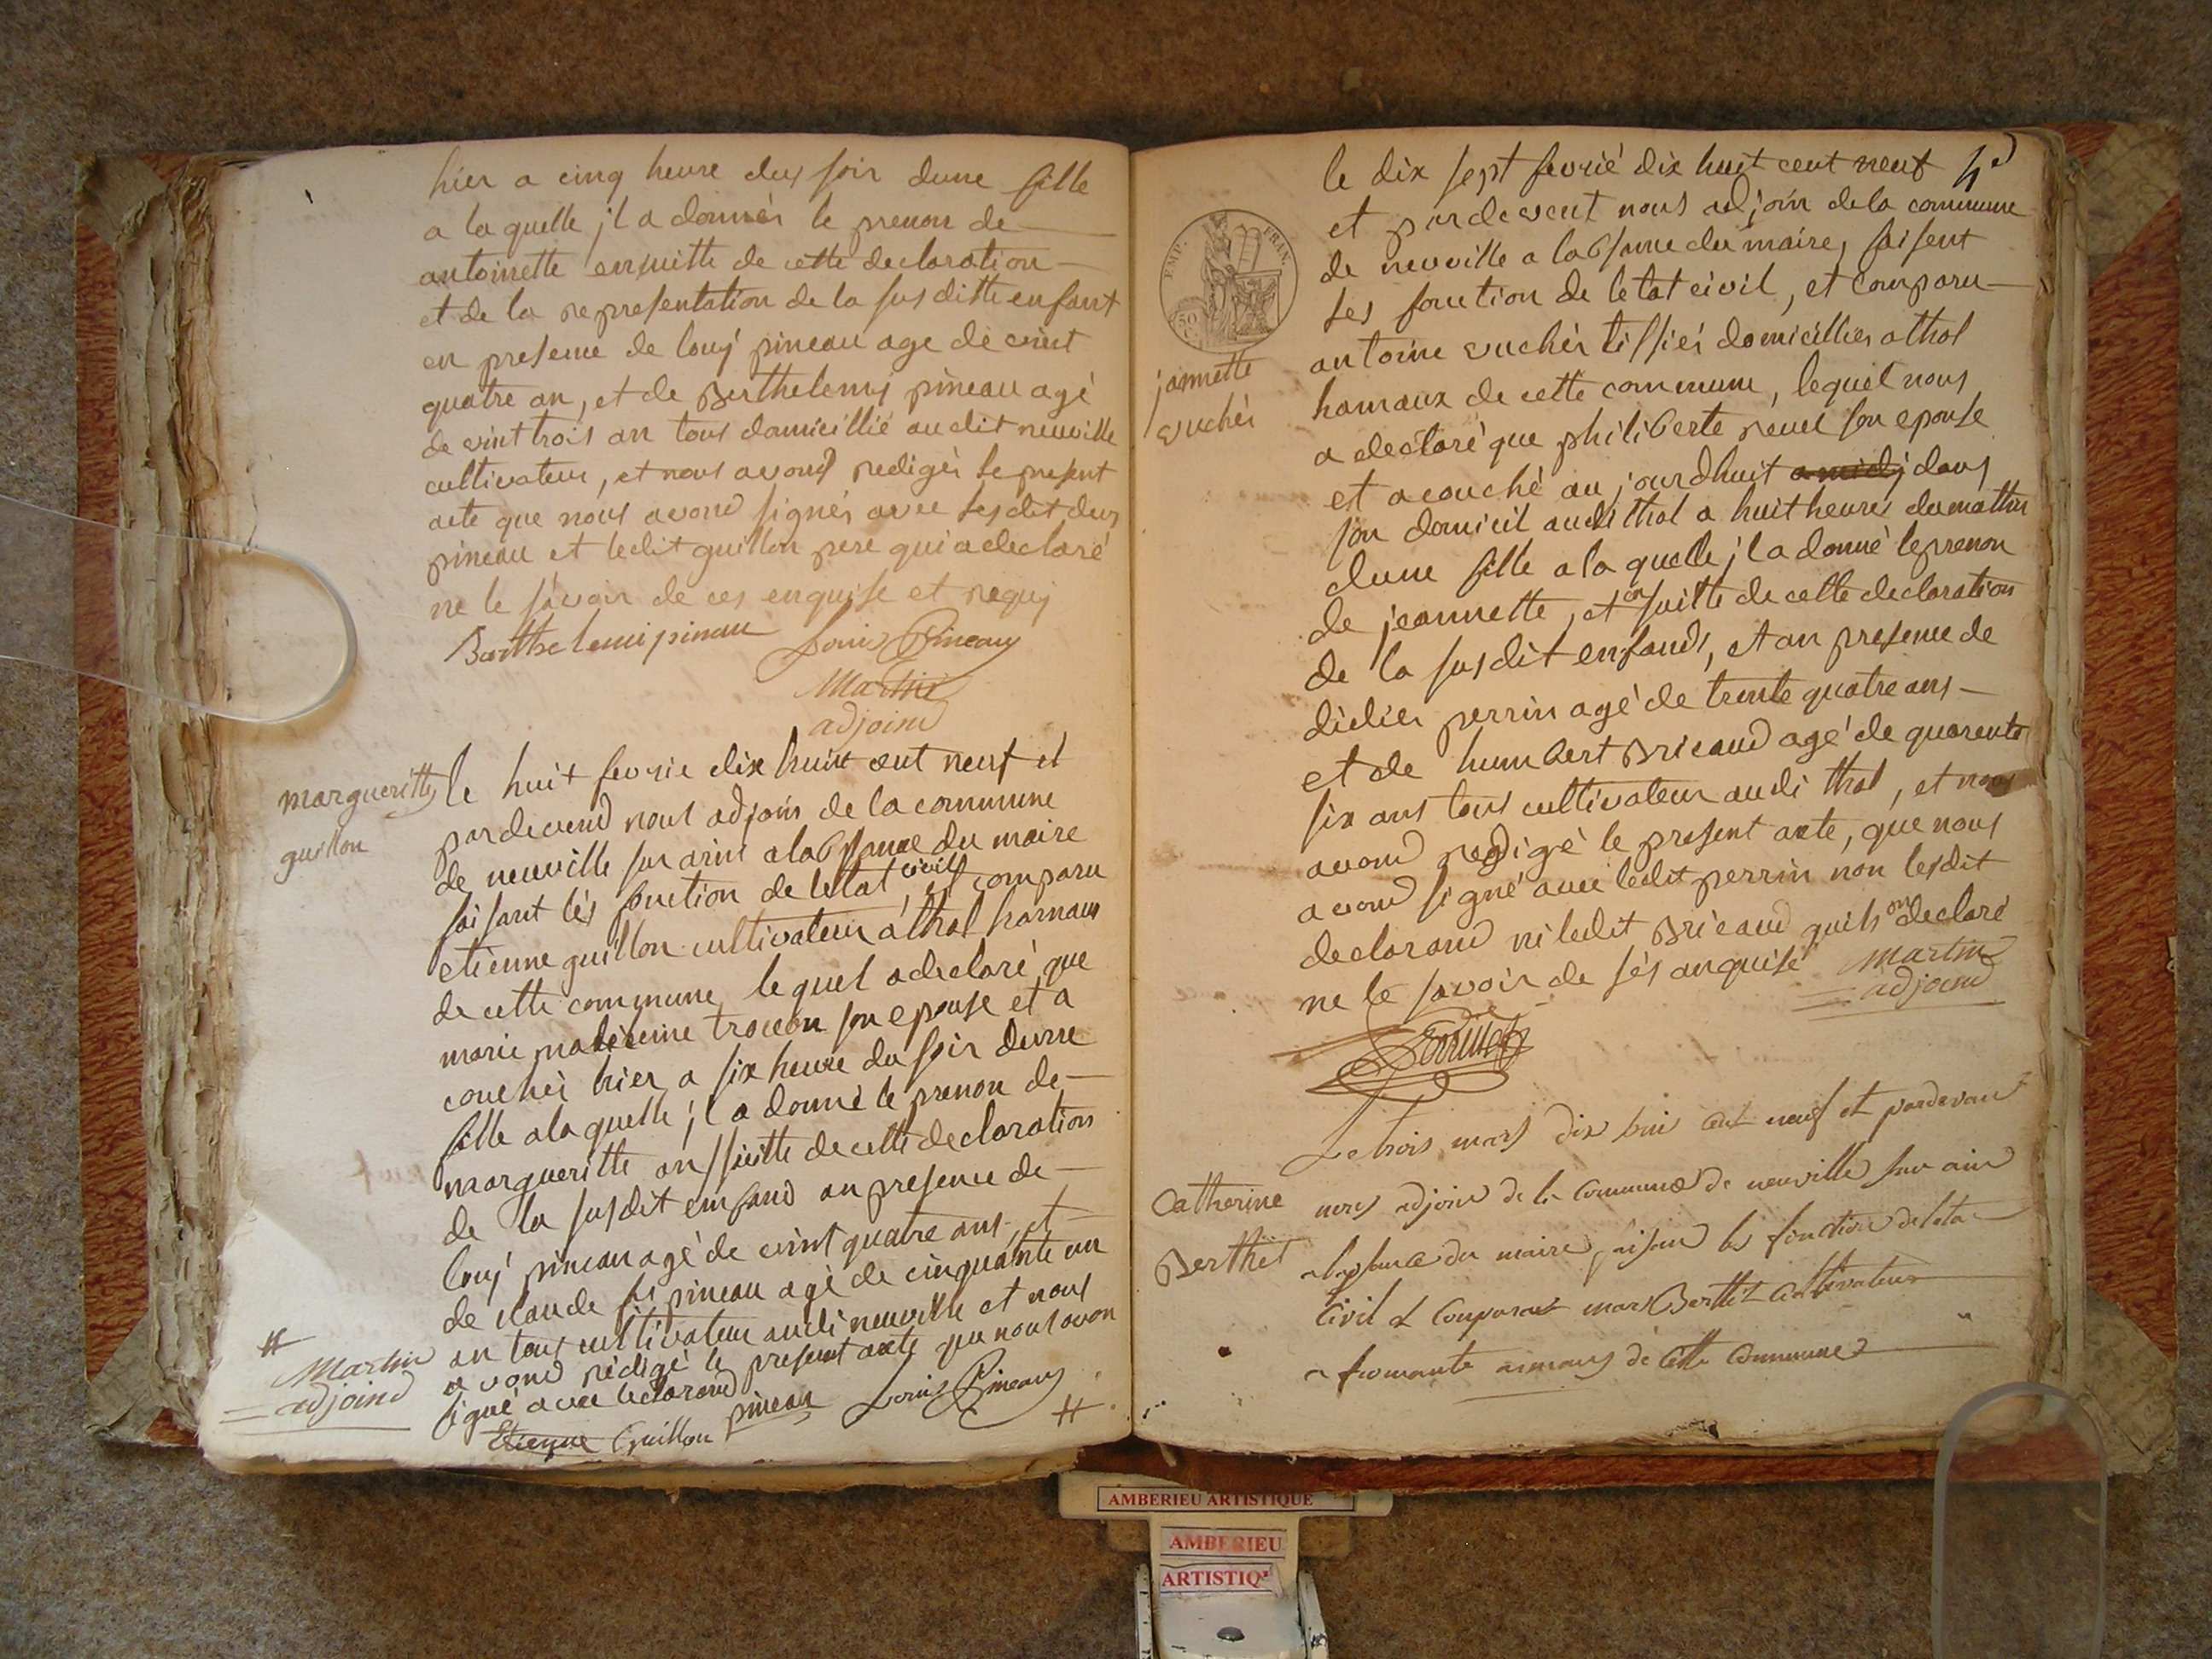 hier a cinq heure dus soir dune fille
a la quelle jl a donnér le prenon de
antoinette ensuitte de cette declaration
et de la representation de la susditte enfant
en presene de louj pineau age de vint
quatre an, et de Berthelemj pineau agé
de vint trois an tous domicillié audit neuville
cultivateur, et nous avond redigér le present
acte que nous avond signér avec lesdit deus
pineau et ledit guillon pere qui a declaré
ne le savoir de ces enquise et requj
Barthelemi pineau Louis Pineau
Martin
adjoind
margueritte
guillon
le huit fevrie dix huit cent neuf et
pardevend nous adjoin de la commune
de neuville sur ains a labsance du maire
faisant lés fonction de letat civil, et comparu
etienne guillon cultivateur a thol hamaux
de cette commune lequel a declaré que
marie son epouse et a
couchér hier a six heure du soir dunne
fille a la quelle jl a donné le prenon de
margueritte an suitte de cette declaration
de la susdit enfand an presence de
louj pineau agé de vint quatre ans, et
de claude pineau agé de cinquante un
an tous cultivateur audi neuville et nous
avond rédigé le present acte que nous avon
signé avec declarand
Etienne Guillon pineau Louis Pineau #
#
Martin
adjoind
EMP. FRAN.
50
jannette
vuchér
le dix sept fevrié dix huit cent neuf
et pardevent nous adjoin de la commune
de neuville a labsanne du maire, faisent
les fonction de letat civil, et comparu
antoine vuchér tissiér domicillier a thol
hamaux de cette commune, lequel nous
a declaré que philiberte son epouse
et acouché aujourdhuit a midj dans
son domicil audi thol a huit heures du mattin
dune fille a la quelle jl a donné le prenon
de jeannette, et en suitte de cette declaration
de la susdit enfand, et an presence de
didier perrin agé de trente quatre ans
et de humbert Bricaud agé de quarente
six ans tous cultivateur audi thol, et nous
avond redigé le present acte, que nous
avond signé avec ledit perrin non lesdit
declarand ni ledit Bricaud quils on declaré
ne le savoir de sés anquisé martin
adjoind
Catherine
Berthet
Le trois mars dix huit cent neuf et pardevant
nous adjoin de la commune de neuville sur ain
a labsance du maire faisand les fonction de leta
civil et comparant marc Berthet cultivateur
a fromante amaus de cette commune
AMBERIEU ARTISTIQUE
AMBERIEU
ARTISTIQ